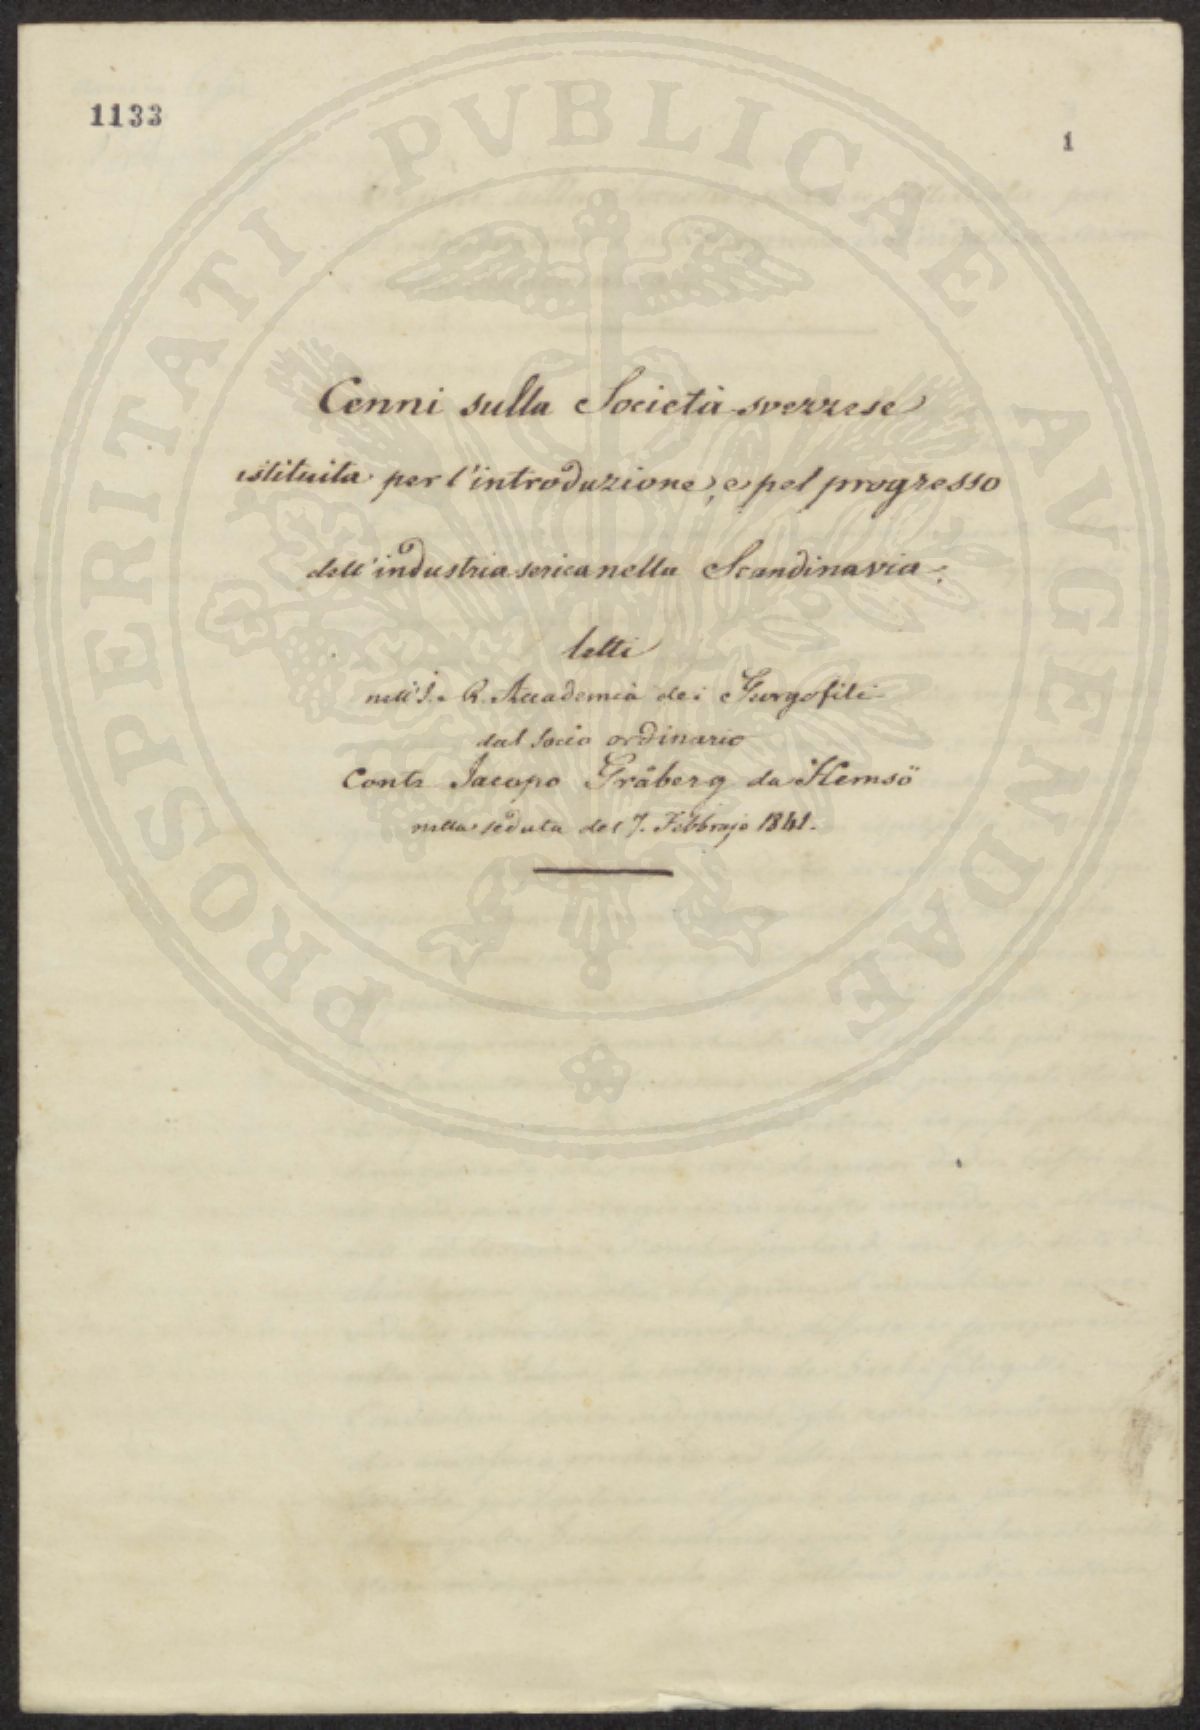 1133
1
PROSPERITATI PVBLICAE AVGENDAE
Cenni sulla Società svezzese
istituita per l'introduzione, e pel progresso
dell'industria serica nella Scandinavia.
letti
nell'I. e R. Accademia dei Georgofili
dal Socio ordinario
Conte Jacopo Gråberg da Hemsö
nella seduta del 7. Febbrajo 1841.